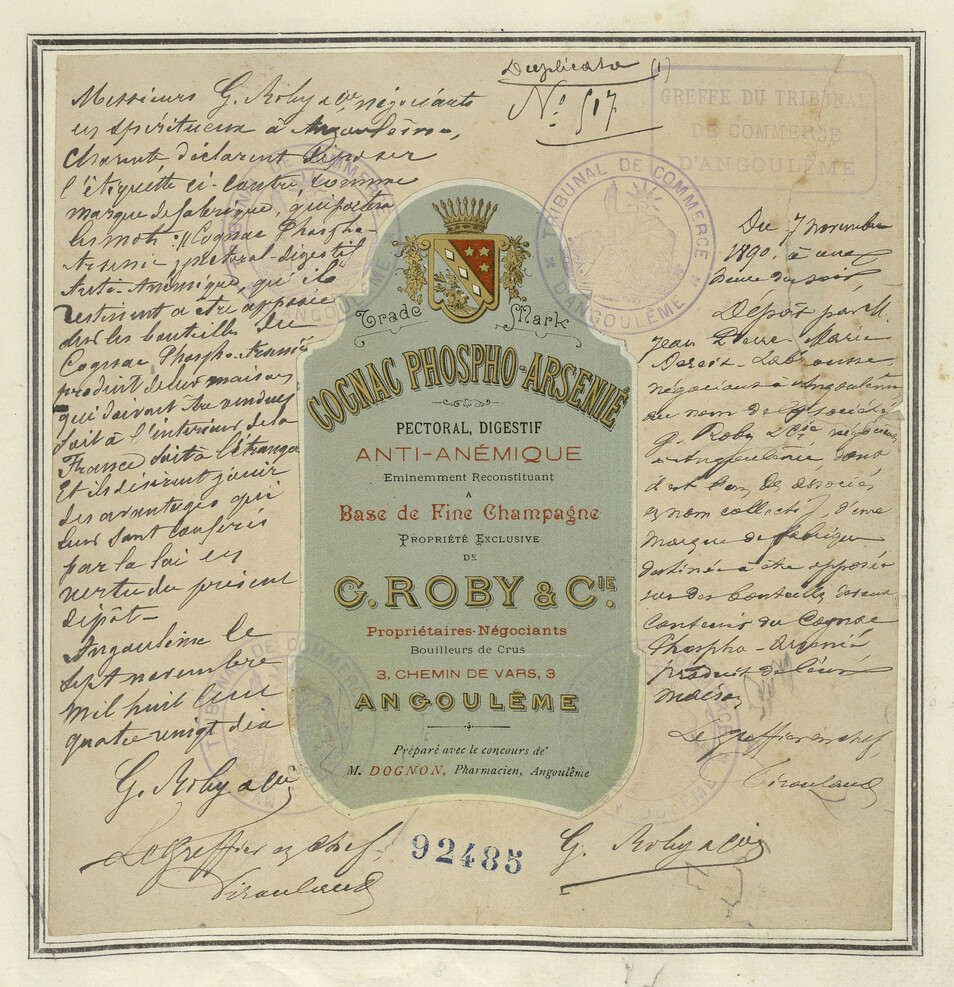 Duplicata (1)
No. 517
GREFFE DU TRIBUNAL
DE COMMERCE
D'ANGOULÊME
Messieurs G. Roby & Cie négociants
en spiritueux à Angoulême,
Charente, déclarent déposer
l'étiquette ci-contre comme
marque de fabrique, qui portera
les mots: "Cognac Phospho-
Arsenié pectoral-digestif
Anti-Anémique, qu'ils
destinent à être apposée
sur les bouteilles de
Cognac Phospho-Arsenié
produit de leur maison
qui doivent être vendues
soit à l'intérieur de la
France soit à l'étranger
Et ils désirent jouir
des avantages qui
leur sont conférés
par la loi en
vertu du présent
dépôt-
Angoulême le
sept novembre
mil huit cent
quatre vingt dix
G. Roby & Cie
Le Greffier en chef
TRIBUNAL DE COMMERCE
D'ANGOULÊME
Trade Mark
COGNAC PHOSPHO-ARSENIÉ
PECTORAL, DIGESTIF
ANTI-ANÉMIQUE
Eminemment Reconstituant
A
Base de Fine Champagne
PROPRIÉTÉ EXCLUSIVE
DE
G. ROBY & CIE.
Propriétaires-Négociants
Bouilleurs de Crus
3, CHEMIN DE VARS, 3
ANGOULÊME
Préparé avec le concours de
M. DOGNON, Pharmacien, Angoulême
92485
Du 7 novembre
1890, à onze
heure du soir,
Déposé par M.
Jean Pierre Marie
négociant à Angoulême
au nom de la société
G. Roby & Cie négociants
à Angoulême, dont
il est l'un des associés
en nom collectif, d'une
marque de fabrique
destinée à être apposée
sur des bouteilles devant
contenir du Cognac
Phospho-Arsenié
produit de leur
maison
Le Greffier en chef
G. Roby & Cie